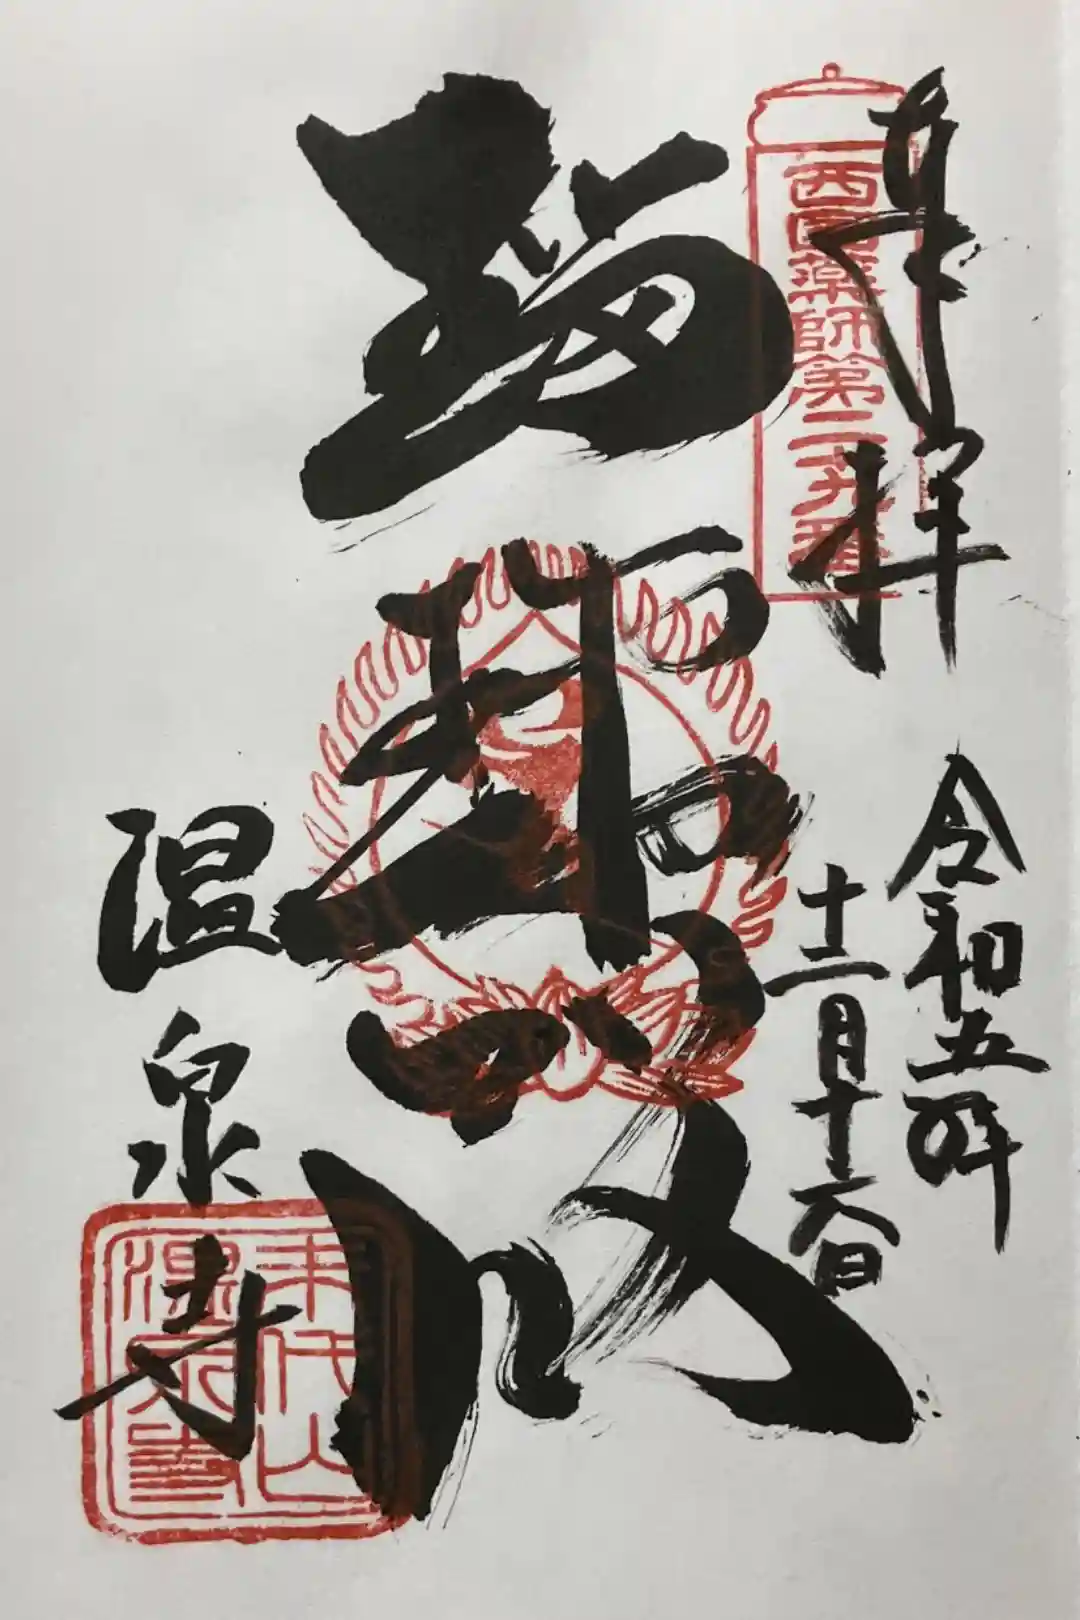 奉拝
西國薬師第二九番
令和五年
十二月十六日
温泉寺
末代山
温泉寺